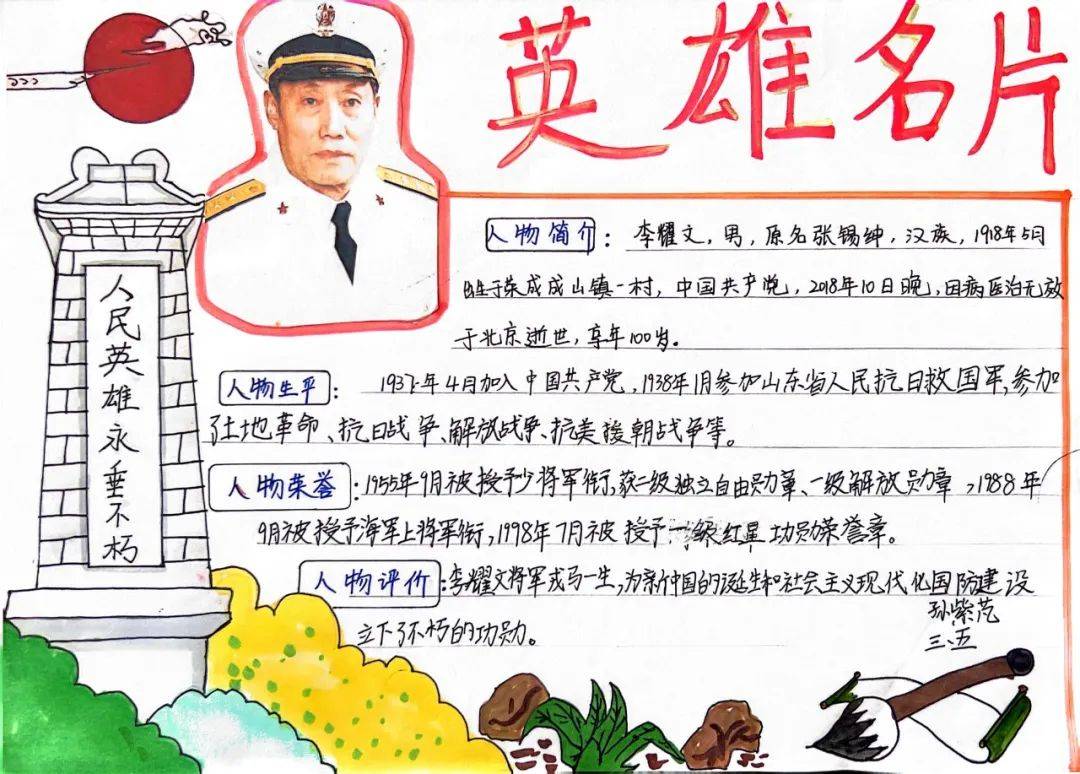 英雄名片
人民英雄永垂不朽
人物简介：李耀文，男，原名张锡绅，汉族，1918年5月
出生于荣成成山镇一村，中国共产党，2018年10日晚，因病医治无效
于北京逝世，享年100岁。
人物生平：1937年4月加入中国共产党，1938年1月参加山东省人民抗日救国军，参加
了土地革命、抗日战争、解放战争、抗美援朝战争等。
人物荣誉：1955年9月被授予少将军衔，获二级独立自由勋章、一级解放勋章，1988年
9月被授予海军上将军衔，1998年7月被授予一级红星功勋荣誉章。
人物评价：李耀文将军戎马一生，为新中国的诞生和社会主义现代化国防建设
立下了不朽的功勋。
孙紫范
三、五